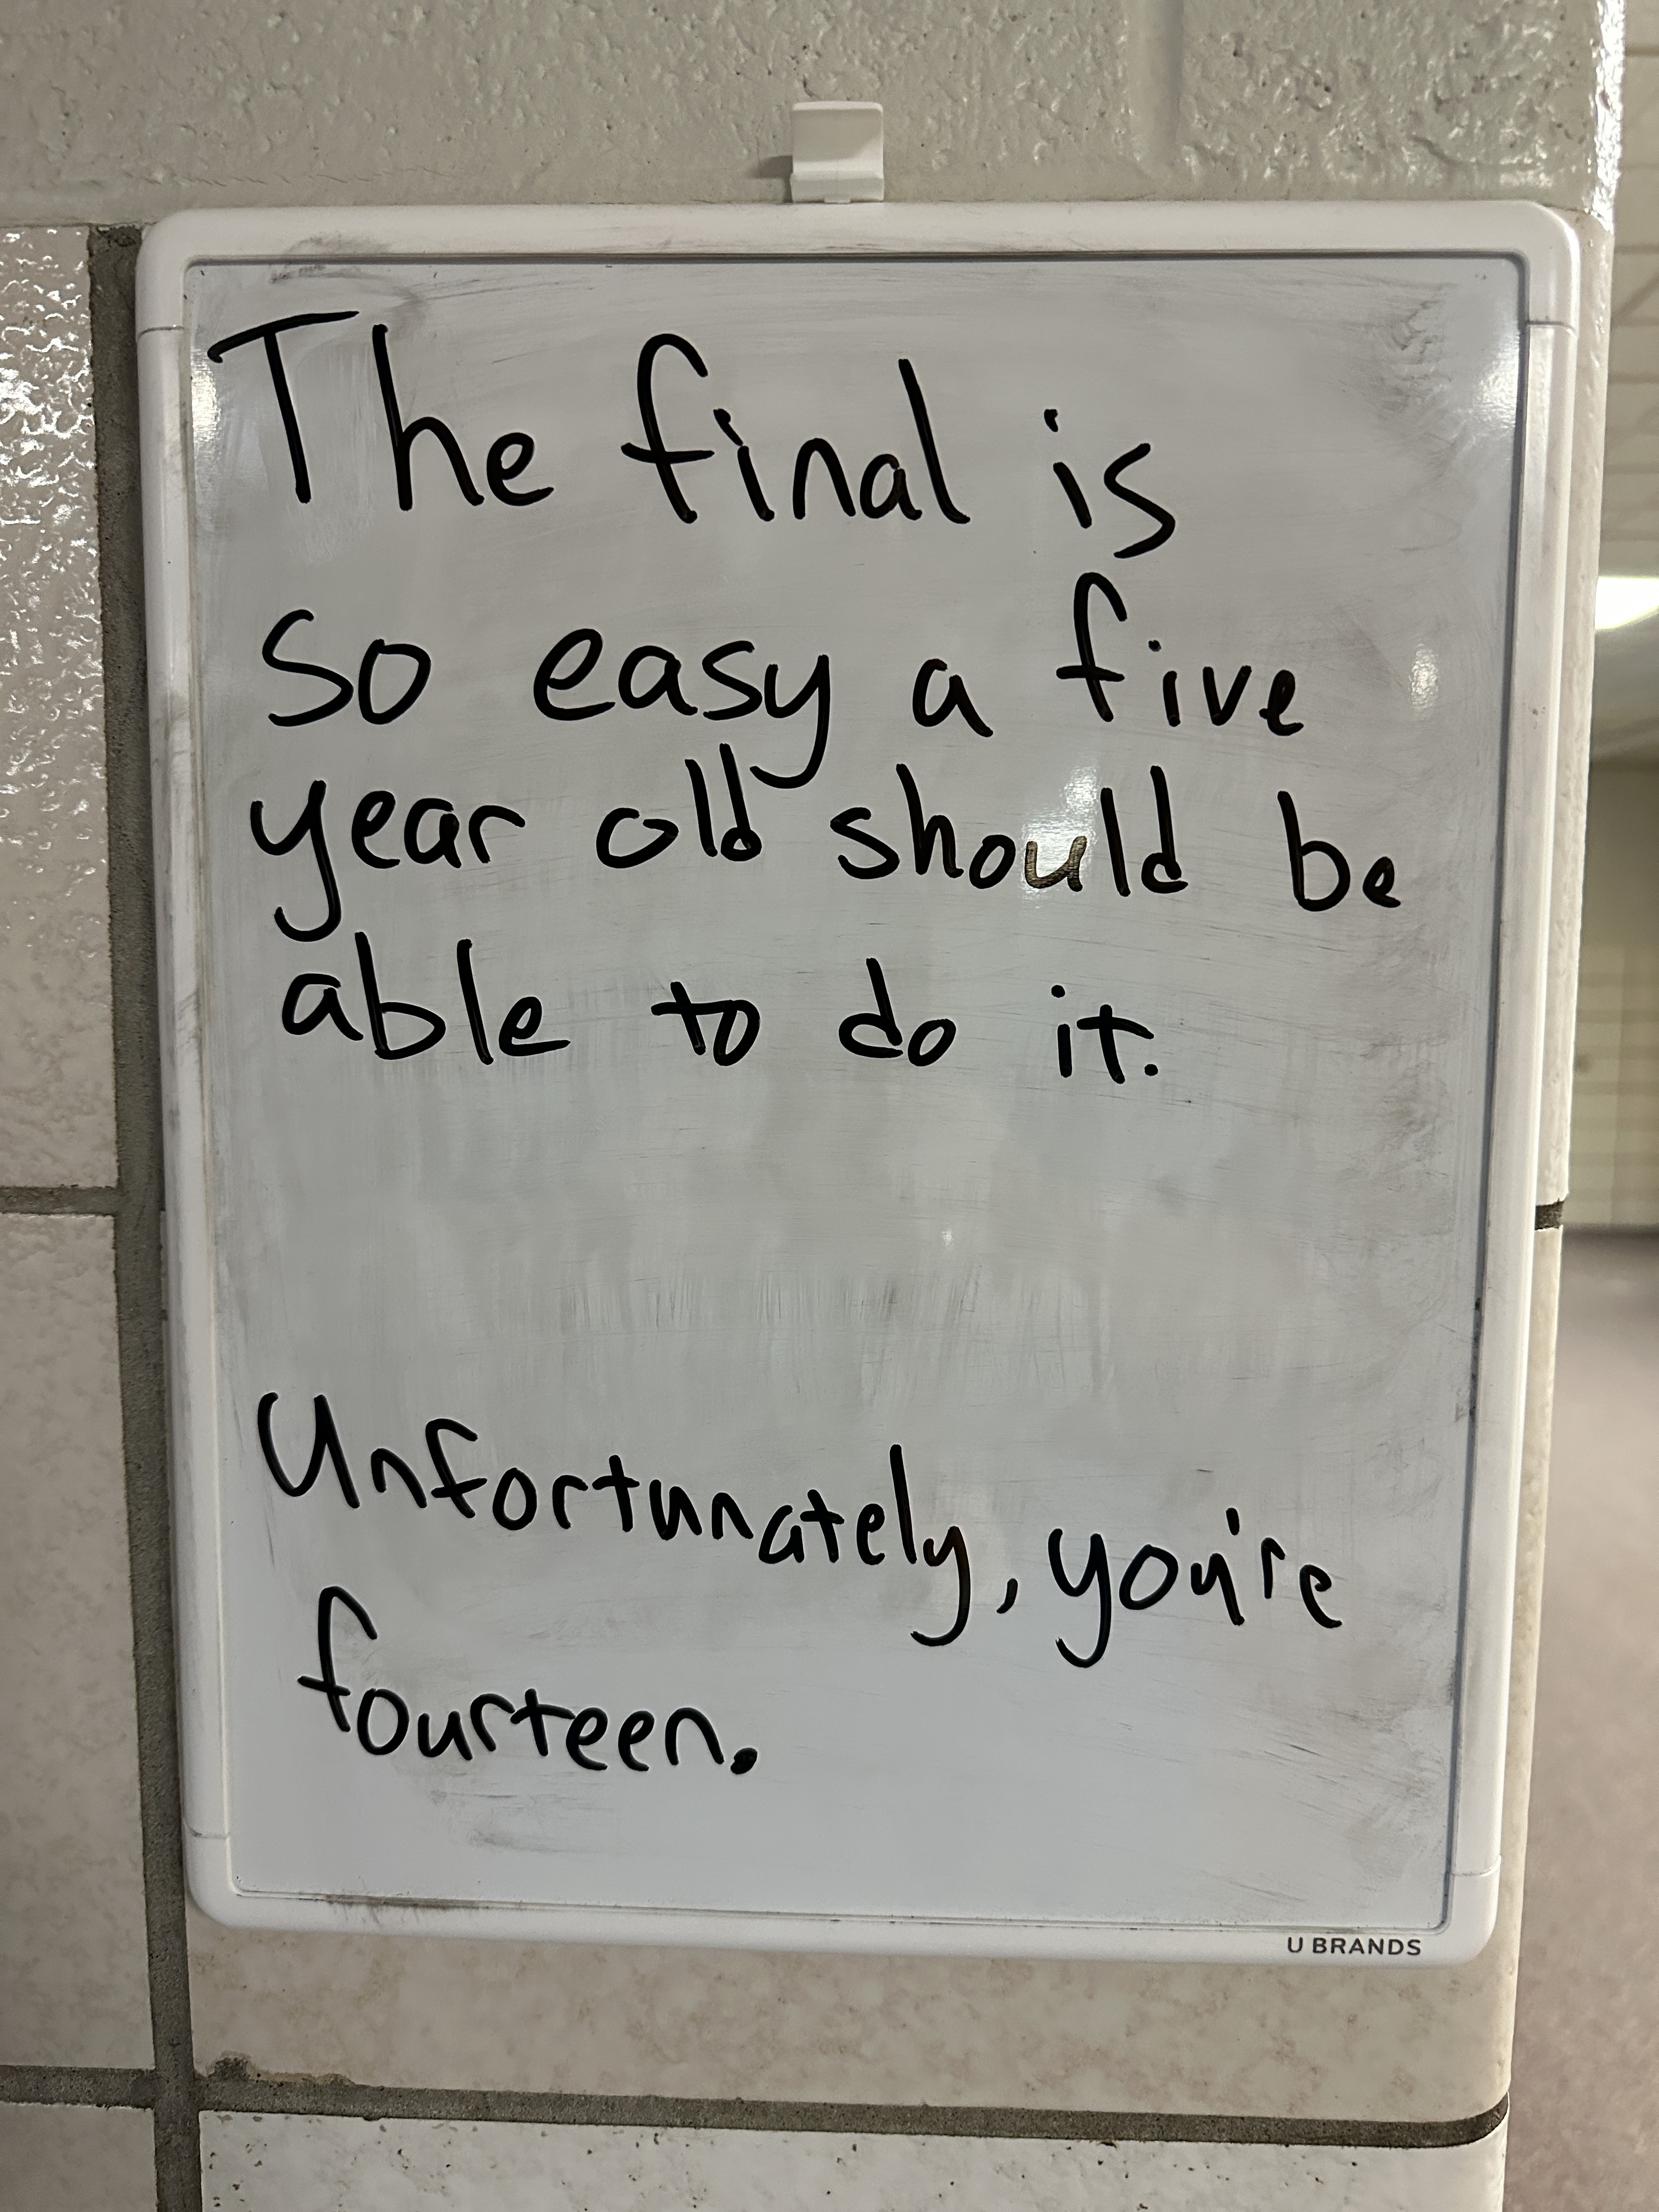 The final is
so easy a five
year old should be
able to do it.
Unfortunately, you're
fourteen.
U BRANDS